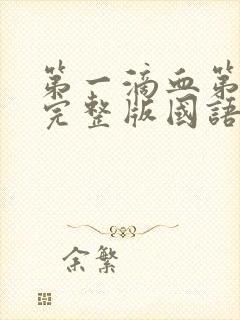 第一滴血第
完整版國語
余繁